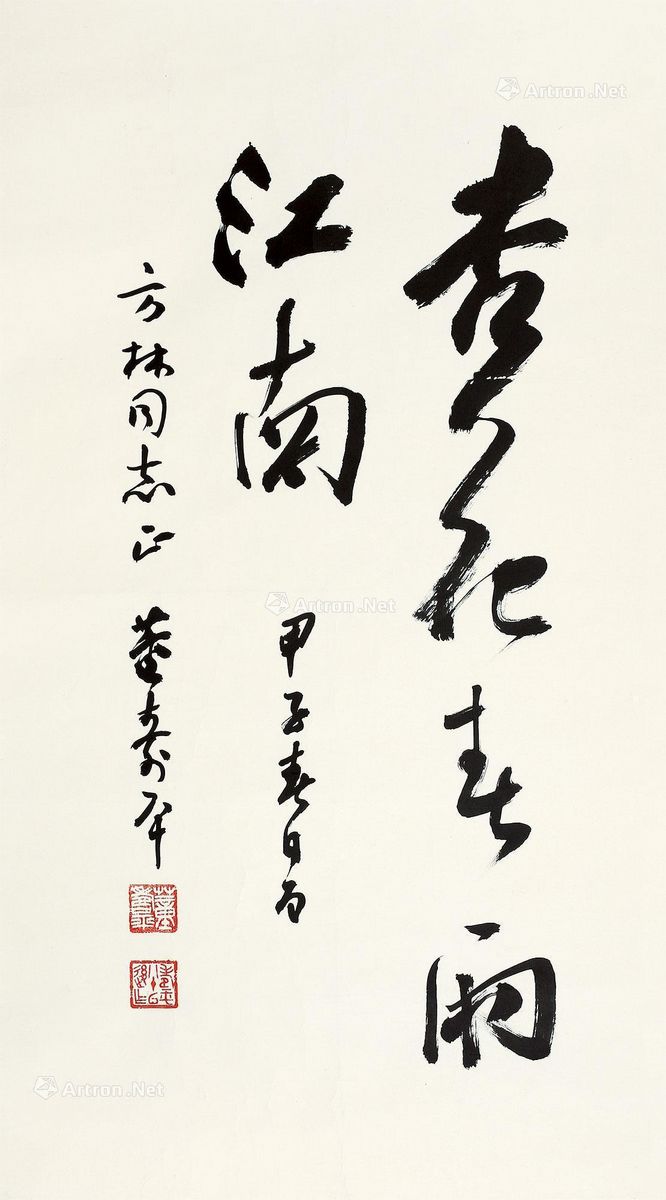 杏花春雨
江南
甲子春日为
方林同志正 董寿平
董寿平
Artron.Net
Artron.Net
Artron.Net